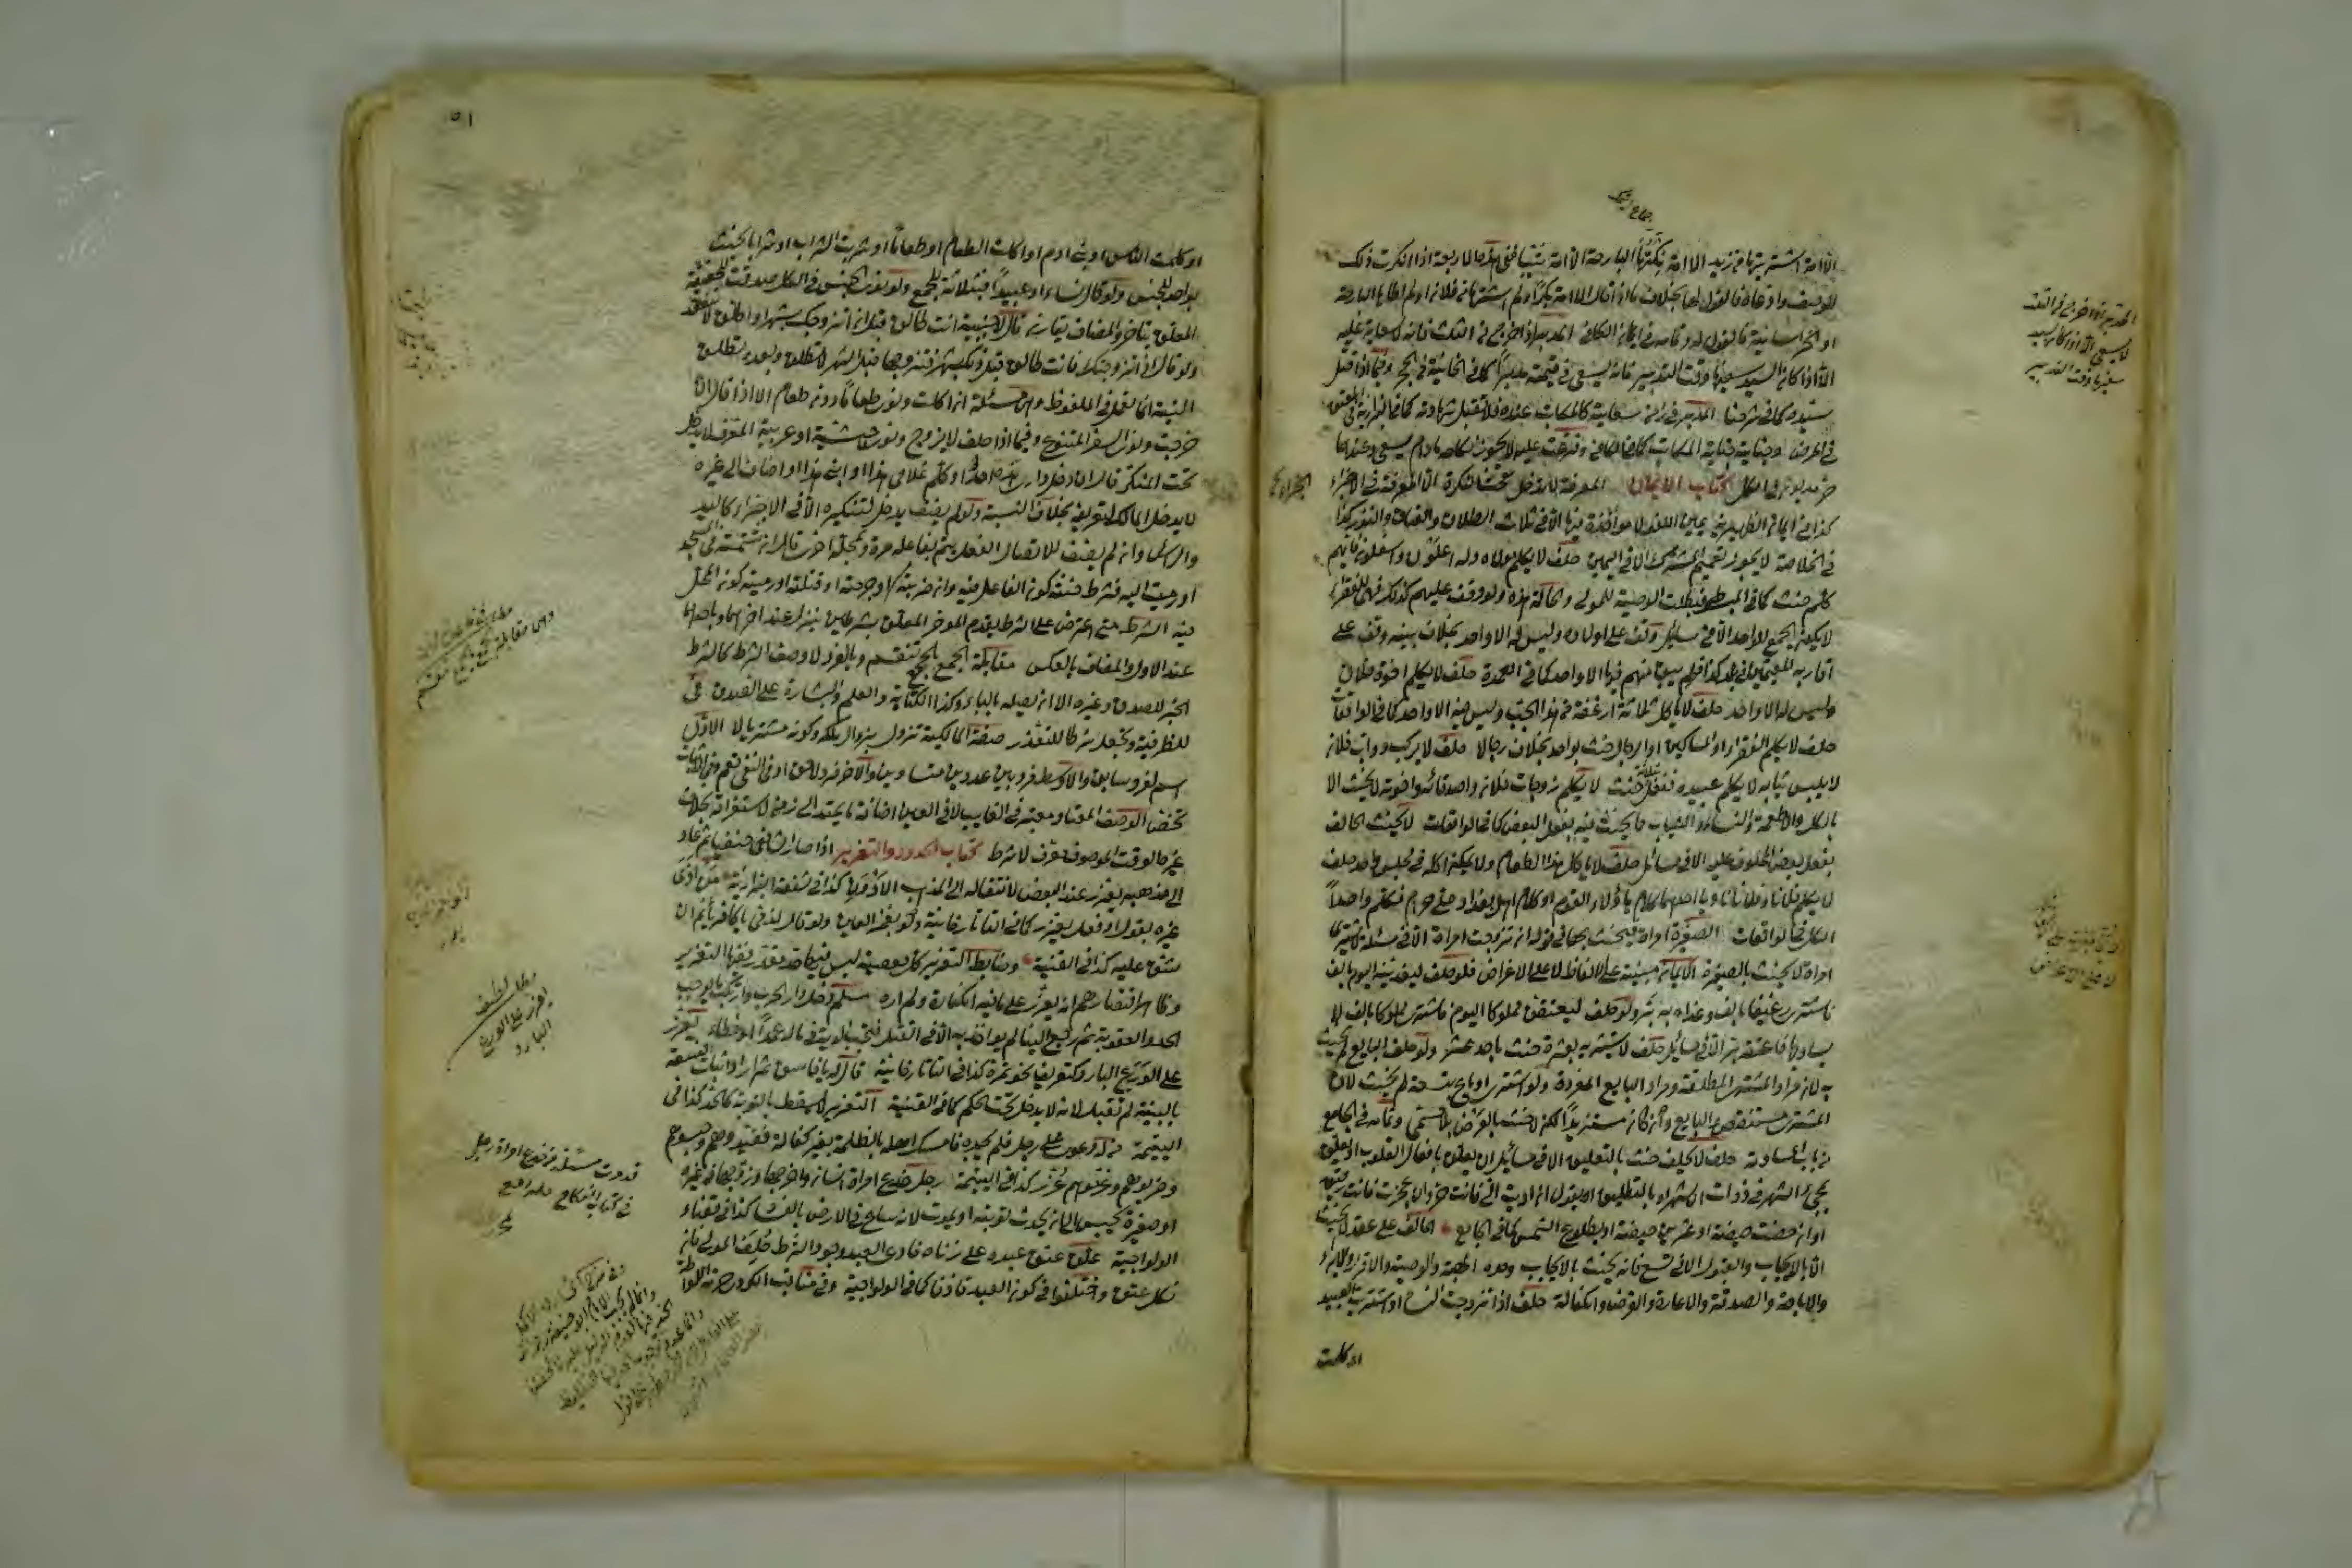 الا امة اشتريتها من زيد الا امة نكحتها البارحة الا امة ثيبا فى هذه الاربعة اذا انكرت ذلك
الوصف وادعاه فالقول لها بخلاف ما اذا قال الا امة بكرا ولم اشترها من فلان او لم اطأها البارحة
او الا خراسانية فالقول له وتمامه فى ايمان الكافى المدبر اذا خرج من الثلث فانه لا سعاية عليه
الا اذا كان السيد سفيها وقت التدبير فانه يسعى فى قيمته مدبرا كما فى الخانية فى الحجر وفيما اذا قتل
سيده كما فى شرحنا المدبر فى زمن سعايته كالمكاتب عنده فلا تقبل شهادته كما فى البزازية فى العتق
فى المرض وجنايته جناية المكاتب كما فى الكافى وفرعت عليه لا يجوز نكاحه ما دام يسعى وعندهما
حر مديون فى الكل كتاب الايمان المعرفة لا تدخل تحت النكرة الا المعرفة فى الاجزاء
كذا فى ايمان الظهيرية يمين اللغو لا مؤاخذة فيها الا فى ثلاث الطلاق والعتاق والنذر كذا
فى الخلاصة لا يجوز تعميم المشترك الا فى اليمين حلف لا يكلم مولاه وله اعلون واسفلون فايهم
كلم حنث كما فى المبسوط فبطلت الوصية للموالى والحالة هذه ولو وقف عليهم كذلك فهى للفقراء
لا يكون الجمع للواحد الا فى مسائل وقف على اولاده وليس له الا واحد بخلاف بنيه وقف على
اقاربه المقيمين فى بلد كذا فلم يبق منهم فيها الا واحد كما فى العمدة حلف لا يكلم اخوة فلان
وليس له الا واحد حلف لا ياكل ثلاثة ارغفة من هذا الحب وليس فيه الا واحد كما فى الواقعات
حلف لا يكلم الفقراء او المساكين او الرجال حنث بواحد بخلاف رجالا حلف لا يركب دواب فلان
لا يلبس ثيابه لا يكلم عبيده ففعل بثلاثة حنث لا يكلم زوجات فلان واصدقائه واخوته لا يحنث الا
بالكل والاطعمة والنساء والثياب ما يحنث فيه بفعل البعض كما فى الواقعات لا يحنث الحالف
بفعل بعض المحلوف عليه الا فى مسائل حلف لا ياكل هذا الطعام ولا يمكن اكله فى مجلس واحد حلف
لا يكلم فلانا وفلانا ناويا احدهما كلام هؤلاء القوم او كلام اهل بغداد على حرام فكلم واحدا
الكل فى الواقعات الصغيرة امراة فيحنث بها فى قوله ان تزوجت امراة الا فى مسئلة لا يشترى
امراة لا يحنث بالصغيرة الايمان مبنية على الالفاظ لا على الاغراض فلو حلف ليغدينه اليوم بالف
فاشترى رغيفا بالف وغداه به بر ولو حلف ليعتقن مملوكا اليوم فاشترى مملوكا بالف لا
يساويها فاعتقه بر الا فى مسائل حلف لا يشتريه بعشرة حنث باحد عشر ولو حلف البايع لم يحنث
به لان مراد المشترى المطلقة ومراد البايع المفردة ولو اشترى او باع بتسعة لم يحنث لان
المشترى مستنقص والبايع وان كان مستزيدا لكن لا يحنث بالغرض بلا مسمى وتمامه فى الجامع
من باب المساومة حلف لا يحلف حنث بالتعليق الا فى مسائل ان يعلق بافعال القلوب او يعلق
بمجىء الشهر فى ذوات الاشهر او بالتطليق او يقول ان اديت الى فانت حر وان عجزت فانت رقيق
او ان حضت حيضة او عشرين حيضة او بطلوع الشمس كما فى الجامع الحالف على عقد لا يحنث
الا بالايجاب والقبول الا فى تسع فانه يحنث بالايجاب وحده الهبة والوصية والاقرار والابراء
والاباحة والصدقة والاعارة والقرض والكفالة حلف اذا تزوجت النساء او اشتريت العبيد
او كلمت
المدبر اذا خرج من الثلث
لا يسعى الا اذا كان السيد
سفيها وقت التدبير
٥١
او كلمت الناس او بنى ادم او اكلت الطعام او طعاما او شربت الشراب او شرابا يحنث
بواحد للجنس ولو قال نساء او عبيدا فبثلاثة للجمع ولو نوى الجنس فى الكل صدق للحقيقة
المعلق يتاخر والمضاف يقارن قال لاجنبية انت طالق قبل ان اتزوجك بشهر او اطلق لا تنعقد
ولو قال اذا تزوجتك فانت طالق قبل ذلك بشهر فتزوجها قبل الشهر لا تطلق وبعده تطلق
النية انما تعمل فى الملفوظ وهى مسئلة ان اكلت ونوى طعاما دون طعام الا اذا قال ان
خرجت ونوى السفر المتنوع وفيما اذا حلف لا يتزوج ونوى حبشية او عربية المعرف لا يدخل
تحت المنكر قال ان دخل دارى هذه احد او كلم غلامى هذا او ابنى هذا او اضاف الى غيره
لا يدخل المالك لتعريفه بخلاف النسبة ولو لم يضف يدخل لتنكيره الا فى الاجزاء كاليد
والراس وان لم يضف للاتصال الفعل يتم بفاعله مرة وبمحله اخرى قال ان شتمته فى المسجد
او رميت اليه فشرط حنثه كون الفاعل فيه وان ضربته او جرحته او قتلته او رميته كون المحل
فيه الشرط متى اعترض على الشرط يقدم المؤخر المعلق بشرطين ينزل عند اخرهما وباحدهما
عند الاول والمضاف بالعكس مقابلة الجمع بالجمع تنقسم وبالفرد لا وصف الشرط كالشرط
الخبر للصدق وغيره الا ان يصله بالباء وكذا الكتابة والعلم والبشارة على الصدق فى
للظرفية وتجعل شرطا للتعذر صفة المالكية تزول بزوال ملكه وكونه مشتريا لا الاول
اسم لفرد سابق والاوسط فرد بين عددين متساويين والاخر فرد لاحق او فى النفى تعم وفى الاثبات
تخص الوصف المعتاد معتبر فى الغايب لا فى العين اضافة ما يمتد الى زمن لاستغراقه بخلاف
غيره الوقت الموصوف معرف لا شرط كتاب الحدود والتعزير اذا صار الشافعى حنفيا ثم عاد
الى مذهبه يعزر عند البعض لانتقاله الى المذهب الادون كذا فى شفعة البزازية من اذى
غيره بقول او فعل يعزر كما فى التاتارخانية ولو بغمز العين ولو قال لذمى يا كافر ياثم ان
شق عليه كذا فى القنية وضابط التعزير كل معصية ليس فيها حد مقدر ففيها التعزير
وظاهر اقتصارهم انه يعزر على ما فيه الكفارة ولم اره مسلم دخل دار الحرب وارتكب ما يوجب
الحد والعقوبة ثم رجع الينا لم يؤاخذ به الا فى القتل فتجب الدية فى ماله عمدا او خطاء يعزر
على الورع البارد كتعريف نحو تمرة كذا فى التاتارخانية قال له يا فاسق ثم اراد اثبات الفسق
بالبينة لم تقبل لانه لا يدخل تحت الحكم كما فى القنية التعزير لا يسقط بالتوبة كالحد كذا فى
اليتيمة من له دعوى على رجل فلم يجده فامسك اهله بالظلمة بغير كفالة فقيدوهم وحبسوهم
وضربوهم وغرموهم عزر كذا فى اليتيمة رجل خدع امراة انسان واخرجها وزوجها من غيره
او صغيرة يحبس الى ان يحدث توبة او يموت لانه ساع فى الارض بالفساد كذا فى قضاء
الولوالجية علق عتق عبده على زناه فادعى العبد وجود الشرط حلف المولى فان
نكل عتق واختلفوا فى كون العبد قاذفا كما فى الولوالجية وفى مناقب الكردرى حرمة اللواطة
مطلب لطيف
يعزر على الورع
البارد
قد مرت مسئلة من خدع امراة رجل
فى كتاب النكاح